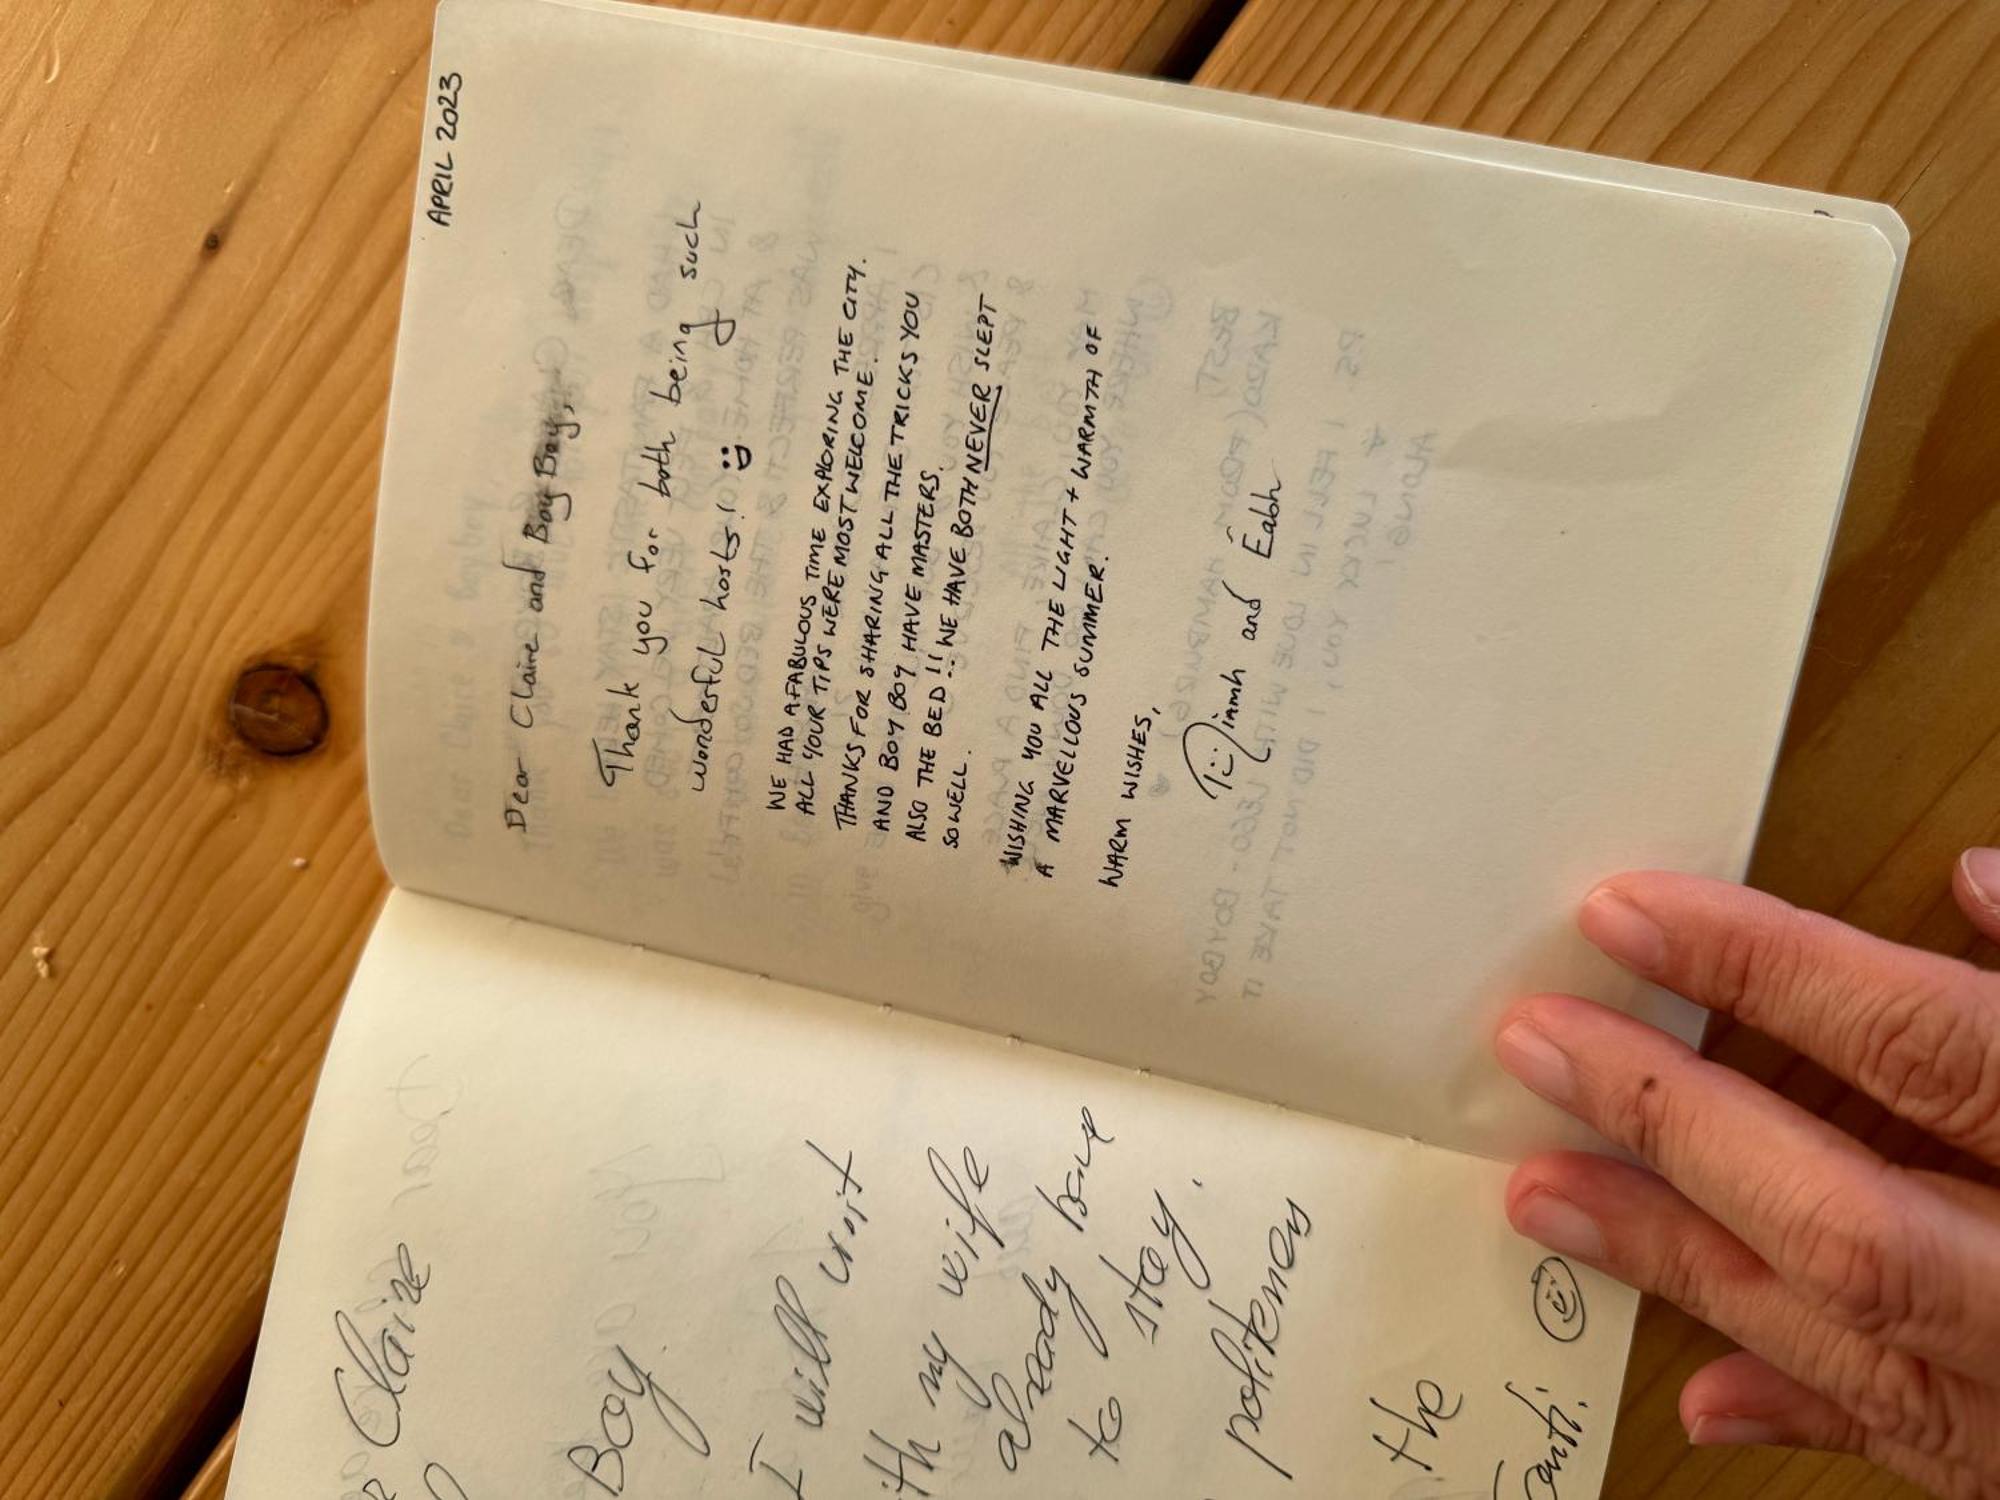 APRIL 2023
Dear Claire and Boy Boy,
Thank you for both being such
wonderful hosts! :D
WE HAD A FABULOUS TIME EXPLORING THE CITY.
ALL YOUR TIPS WERE MOST WELCOME.
THANKS FOR SHARING ALL THE TRICKS YOU
AND BOY BOY HAVE MASTERS.
ALSO THE BED!! WE HAVE BOTH NEVER SLEPT
SO WELL.
WISHING YOU ALL THE LIGHT + WARMTH OF
A MARVELLOUS SUMMER.
WARM WISHES,
Niamh and Éabh
Claire
Boy.
I will visit
my wife
already have
to stay.
politeness
the